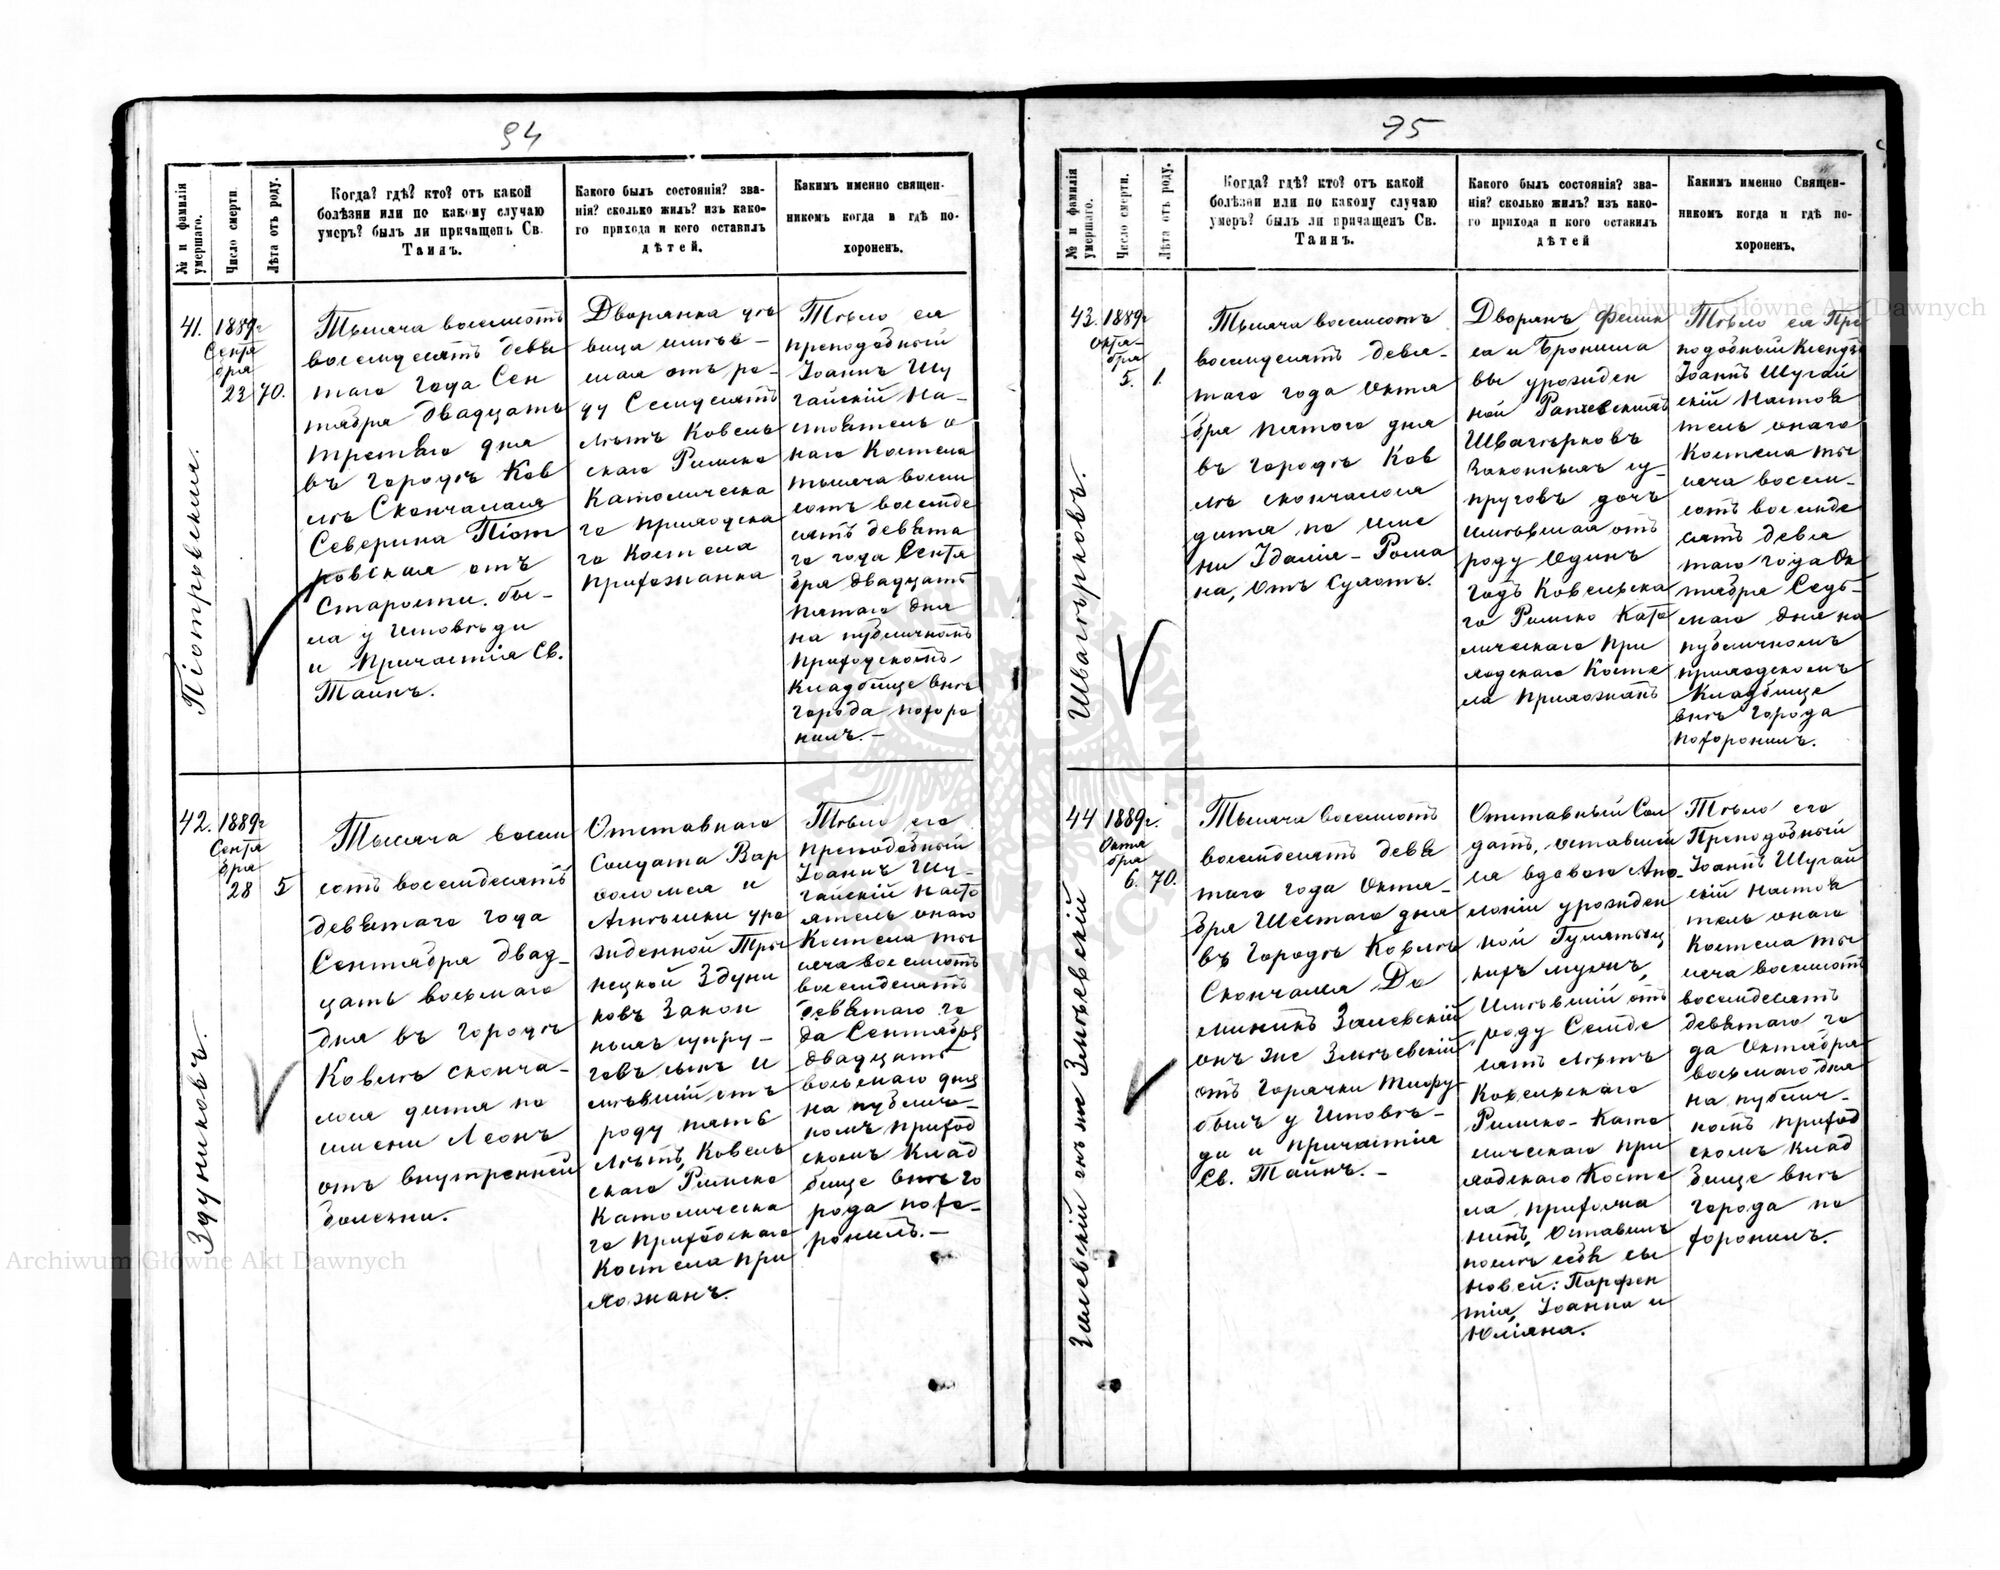 94
№ и фамилія умершаго.
Число смерти.
Лѣта отъ роду.
Когда? гдѣ? кто? отъ какой
болѣзни или по какому случаю
умеръ? былъ ли причащенъ Св.
Таинъ.
Какого былъ состоянія? зва-
нія? сколько жилъ? изъ како-
го прихода и кого оставилъ
дѣтей.
Какимъ именно священ-
никомъ когда и гдѣ по-
хороненъ.
41.
Піотровская.
1889г
Сентя
бря
23
70.
Тысяча восемсотъ
восемдесятъ девя
таго года Сен
тября двадцать
третьяго дня
въ городѣ Ков
лѣ Скончалася
Северина Піот
ровская отъ
Старости. бы-
ла у Исповѣди
и Причастія Св.
Тайнъ.
Дворянка дѣ
вица имѣв-
шая отъ ро-
ду Семдесятъ
лѣтъ Ковель
скаго Римско
Католическа
го приходска
го Костела
прихожанка
Тѣло ея
преподобный
Іоаннъ Шу
гайскій На-
стоятель о
наго Костела
тысяча восем
сотъ восемде
сятъ девята
го года Сентя
бря двадцать
пятаго дня
на публичномъ
приходскомъ
кладбище внѣ
города похоро
нилъ.-
42.
Здуниковъ.
1889г
Сентя
бря
28
5
Тысяча восем
сотъ восемдесятъ
девятаго года
Сентября двад-
цать восьмаго
дня въ городѣ
Ковлѣ сконча-
лося дитя по
имени Леонъ
отъ внутренней
болезни.
Отставнаго
Солдата Вар
ѳоломея и
Агнѣшки уро
жденной Тры
нецкой Здуни
ковъ Закон
ныхъ супру-
говъ сынъ и
мѣвшій отъ
роду пять
лѣтъ, Ковель
скаго Римско
Католическа
го Приходскаго
Костела при
хожанъ.
Тѣло его
преподобный
Іоаннъ Шу-
гайскій Насто
ятель онаго
Костела ты
сяча восемсотъ
восемдесятъ
девятаго го
да Сентября
двадцать
восьмаго дня
на публич-
номъ приход
скомъ Клад
бище внѣ го
рода похо-
ронилъ.-
95
№ и фамилія умершаго.
Число смерти.
Лѣта отъ роду.
Когда? гдѣ? кто? отъ какой
болѣзни или по какому случаю
умеръ? былъ ли причащенъ Св.
Таинъ.
Какого былъ состоянія? зва-
нія? сколько жилъ? изъ како-
го прихода и кого оставилъ
дѣтей
Какимъ именно Священ-
никомъ когда и гдѣ по-
хороненъ.
43.
Швагѣрковъ.
1889г
Октя-
бря
5.
1.
Тысяча восемсотъ
восемдесятъ девя-
таго года Октя
бря пятого дня
въ городѣ Ков
лѣ скончалося
дитя по име
ни Идалія-Рома
на, отъ Сухотъ.
Дворянъ Фелик
са и Брониславы
вы урожден
ной
Швагѣрковъ
Законныхъ су-
пруговъ дочь
имѣвшая отъ
роду Одинъ
годъ Ковельска
го Римско Като
лическаго При
ходскаго Косте
ла прихожанъ
Тѣло ея Пре
подобный Ксендзъ
Іоаннъ Шугай
скій Настоя
тель онаго
Костела ты
сяча восем-
сотъ восемде
сятъ девя
таго года Ок
тября Седь-
маго дня на
публичномъ
приходскомъ
Кладбище
внѣ города
похоронилъ.
44
Залевскій онъ же Змѣевскій
1889г.
Октя
бря
6.
70.
Тысяча восемсотъ
восемдесятъ девя
таго года Октя-
бря Шестаго дня
въ городѣ Ковлѣ
Скончался До
миникъ Залевскій
онъ же Змѣевскій
отъ горячки Тифу
былъ у Исповѣ-
ди и причастія
Св. Тайнъ.-
Отставный Сол
датъ, оставшій
ся вдовою Апо-
лоніи урожден
ной
мужъ,
имѣвшій отъ
роду Семде
сятъ лѣтъ
Ковельскаго
Римско-Като
лическаго при
ходскаго Косте
ла прихожа
нинъ, Оставилъ
послѣ себя сы
новей: Парфен
тія, Іоанна и
Юліяна.
Тѣло его
Преподобный
Іоаннъ Шугай
скій Настоя
тель онаго
Костела ты
сяча восемсотъ
восемдесятъ
девятаго го
да Октября
восьмаго дня
на публич-
номъ приход
скомъ Клад
бище внѣ
города по
хоронилъ.
Archiwum Główne Akt Dawnych
Archiwum Główne Akt Dawnych